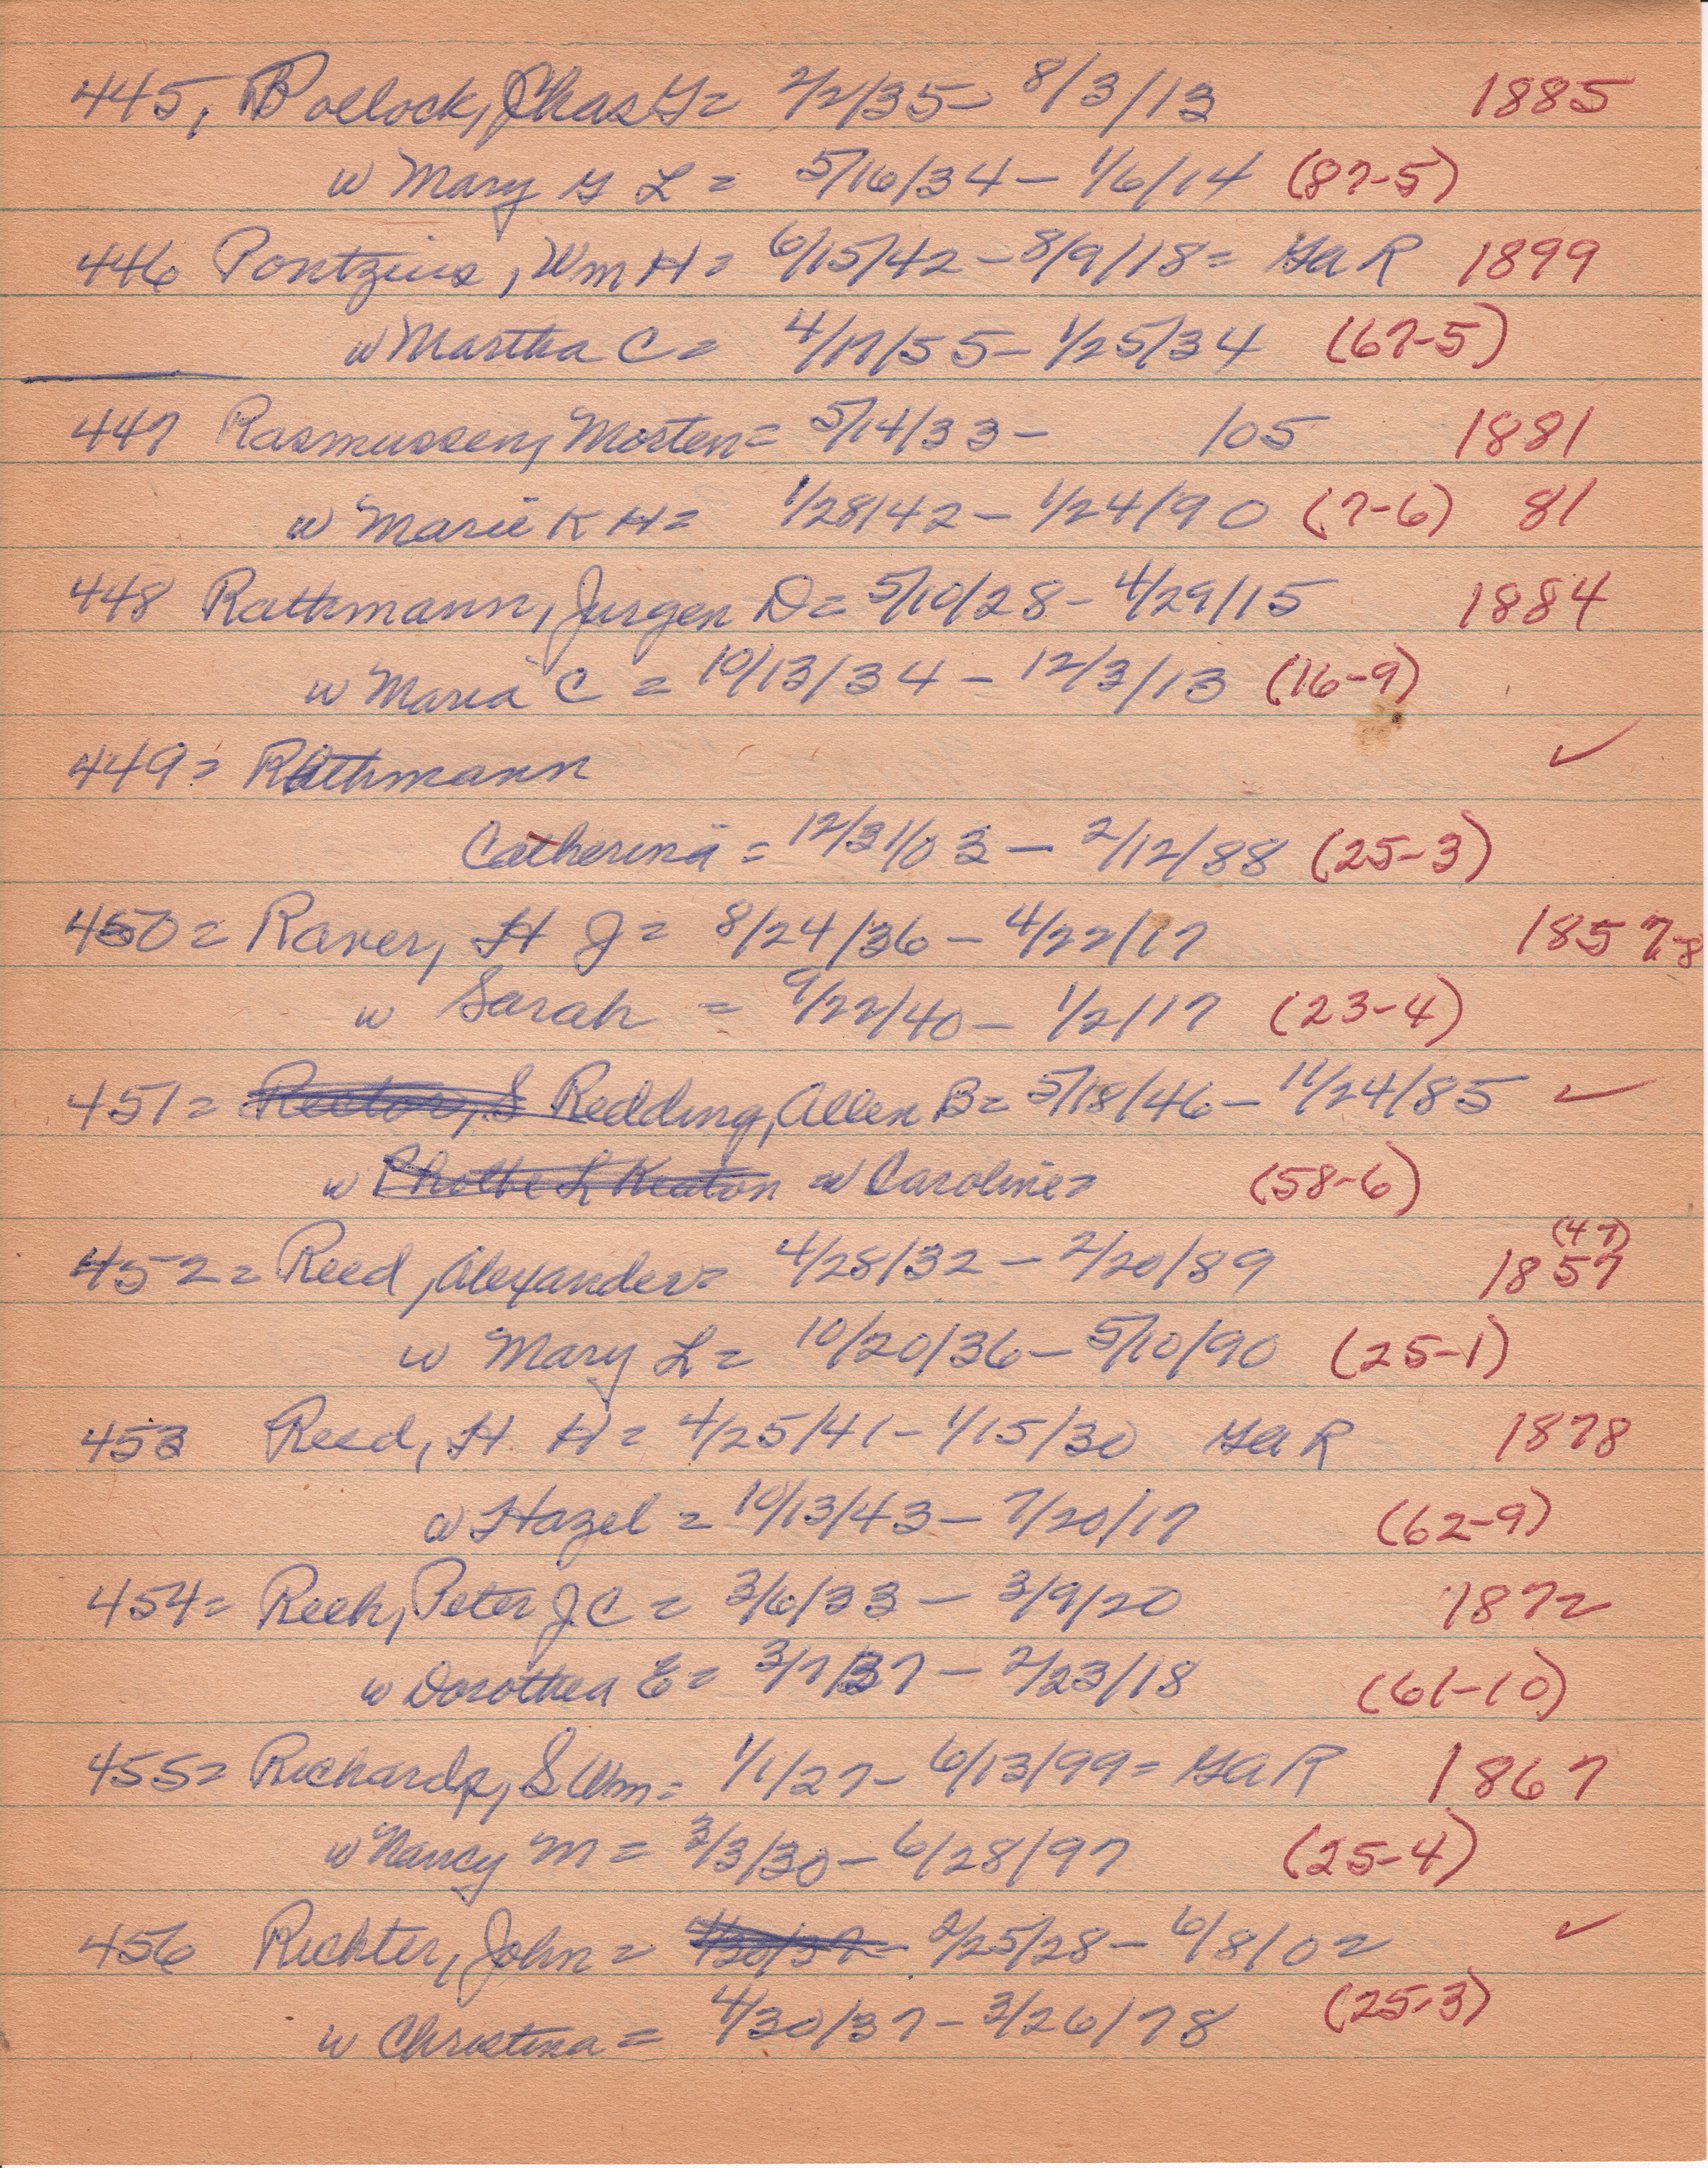 445, Pollock, Chas G = 2/2/35 - 8/3/13 1885
w Mary G L = 5/16/34 - 1/6/14 (87-5)
446 Pontzius, Wm H = 6/15/42 - 8/9/18 = GAR 1899
w Martha C = 4/17/55 - 1/25/34 (67-5)
447 Rasmussen, Morten = 5/14/33 - /05 1881
w Marie K H = 1/28/42 - 1/24/90 (7-6) 81
448 Rathmann, Jurgen D = 5/10/28 - 4/29/15 1884
w Maria C = 10/13/34 - 12/3/13 (16-9)
449 = Rathmann ✓
Catherina = 12/31/03 - 2/12/88 (25-3)
450 = Raver, H J = 8/24/36 - 4/22/17 1857-8
w Sarah = 9/22/40 - 1/2/17 (23-4)
451 = Rector, S Redding, Allen B = 5/18/46 - 11/24/85 ✓
w Keaton w Caroline = (58-6)
(47)
452 = Reed, Alexander = 4/28/32 - 2/20/89 1857
w Mary L = 10/20/36 - 5/10/90 (25-1)
453 Reed, H H = 4/25/41 - 1/15/30 GAR 1878
w Hazel = 10/13/43 - 7/20/17 (62-9)
454 = Reeh, Peter J C = 3/6/33 - 3/9/20 1872
w Dorothea E = 3/7/37 - 2/23/18 (61-10)
455 = Richards, S Wm = 1/1/27 - 6/13/99 = GAR 1867
w Nancy M = 3/3/30 - 6/28/97 (25-4)
456 Richter, John = 4/30/37 - 2/25/28 - 6/8/02 ✓
w Christina = 4/30/37 - 3/26/78 (25-3)